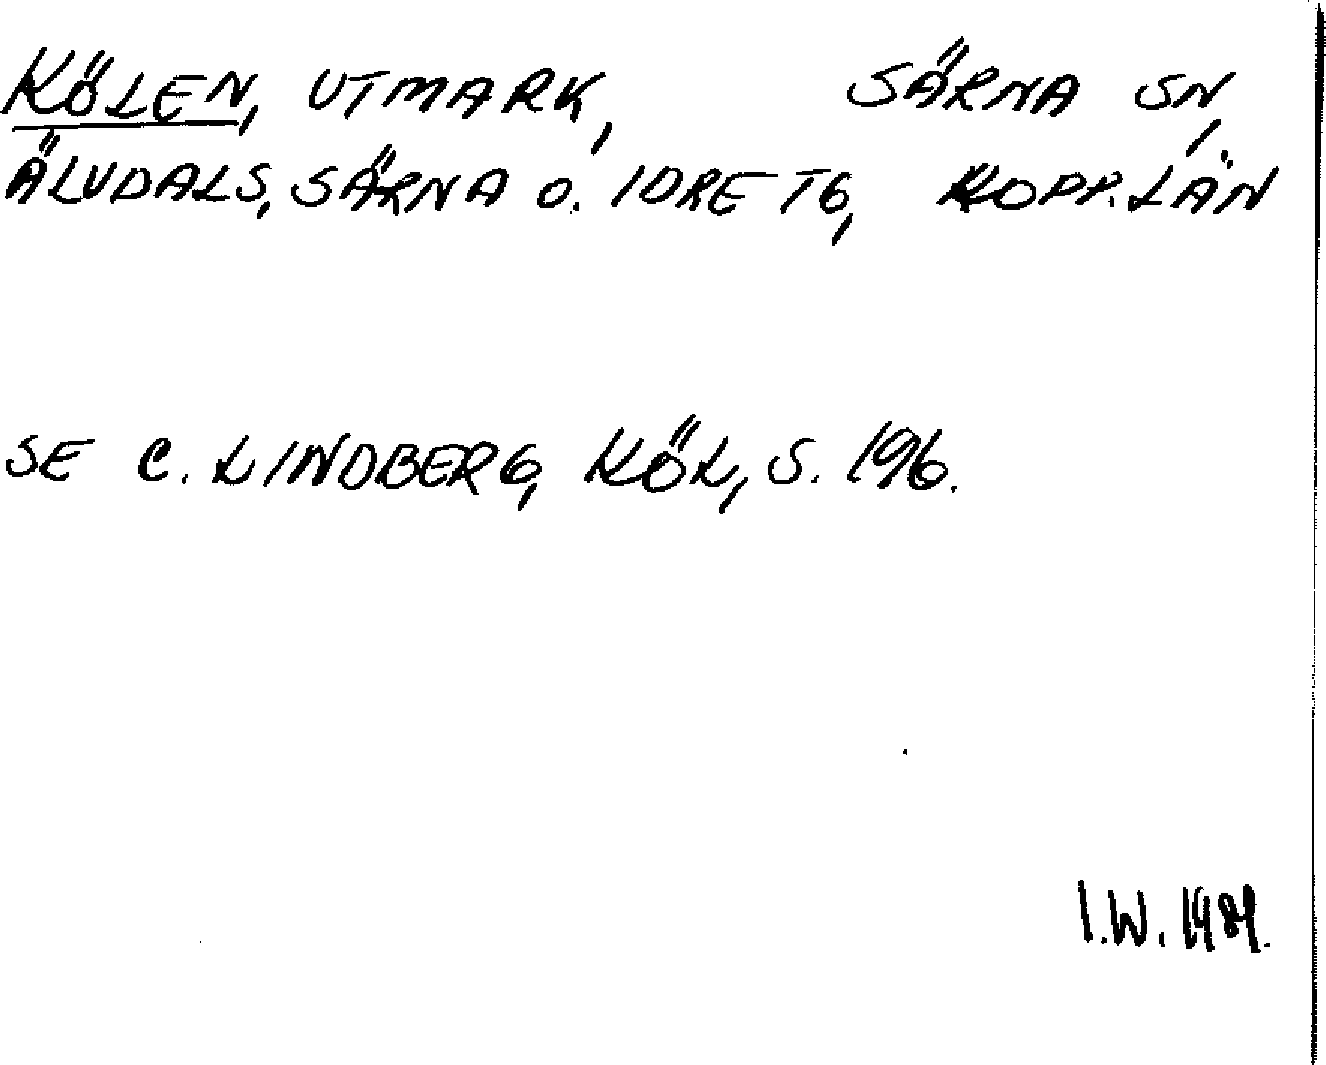 KÖLEN, UTMARK, SÄRNA SN,
ÄLVDALS, SÄRNA O. IDRE TG, KOPP. LÄN
SE C. LINDBERG, KÖL, S. 196.
I.W. 1981.